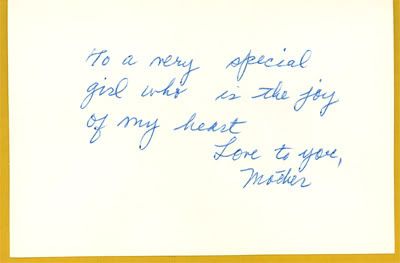 To a very special
girl who is the joy
of my heart
Love to you,
Mother